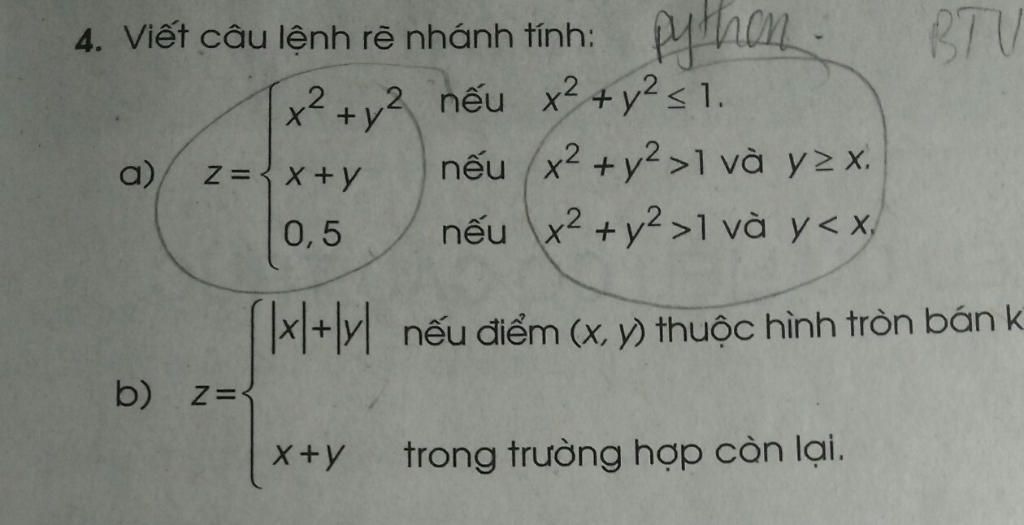 4. Viết câu lệnh rẽ nhánh tính: python. BTV
x² + y² nếu x² + y² ≤ 1.
a) z = x + y nếu x² + y² >1 và y ≥ x.
0,5 nếu x² + y² >1 và y < x.
|x|+|y| nếu điểm (x, y) thuộc hình tròn bán
b) z =
x+y trong trường hợp còn lại.